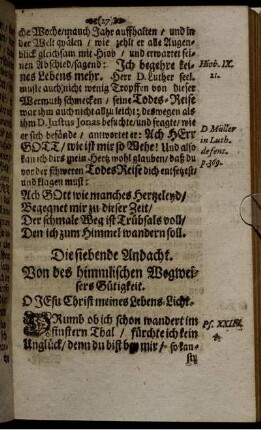 (27)
che Woche/manch Jahr auffhalten / und in
der Welt qválen / wie zehl er alle Augen-
blick gleichsam mit Hiob / und erwartet sei-
nen Abschied/sagend: Ich begehre kei-
nes Lebens mehr. Herr D. Luther seel.
muste auch nicht wenig Tropffen von dieser
Wermuth schmecken / seine Todes-Reise
war ihm auch nicht allzu leicht; deswegen als
ihn D. Justus Jonas besuchte/und fragte/ wie
er sich befände / antwortet er: Ach HErr
GOTT / wie ist mir so Wehe! Und also
kan ich dirs mein Hertz wohl glauben/ daß du
vor der schweren Todes Reise dich entsetzest/
und klagen must:
Ach GOtt wie manches Hertzeleyd/
Begegnet mir zu dieser Zeit/
Der schmale Weg ist Trübsals voll/
Den ich zum Himmel wandern soll.
Hiob. IX.
21.
D. Müller
in Luth.
defens.
p. 369.
Die siebende Andacht.
Von des himmlischen Wegwei-
sers Gütigkeit.
O JEsu Christ meines Lebens Licht.
DRumb ob ich schon wandert im
finstern Thal / fürchte ich kein
Unglück/ denn du bist bey mir/ - so kan-
Ps. XXIII.
4.
stu